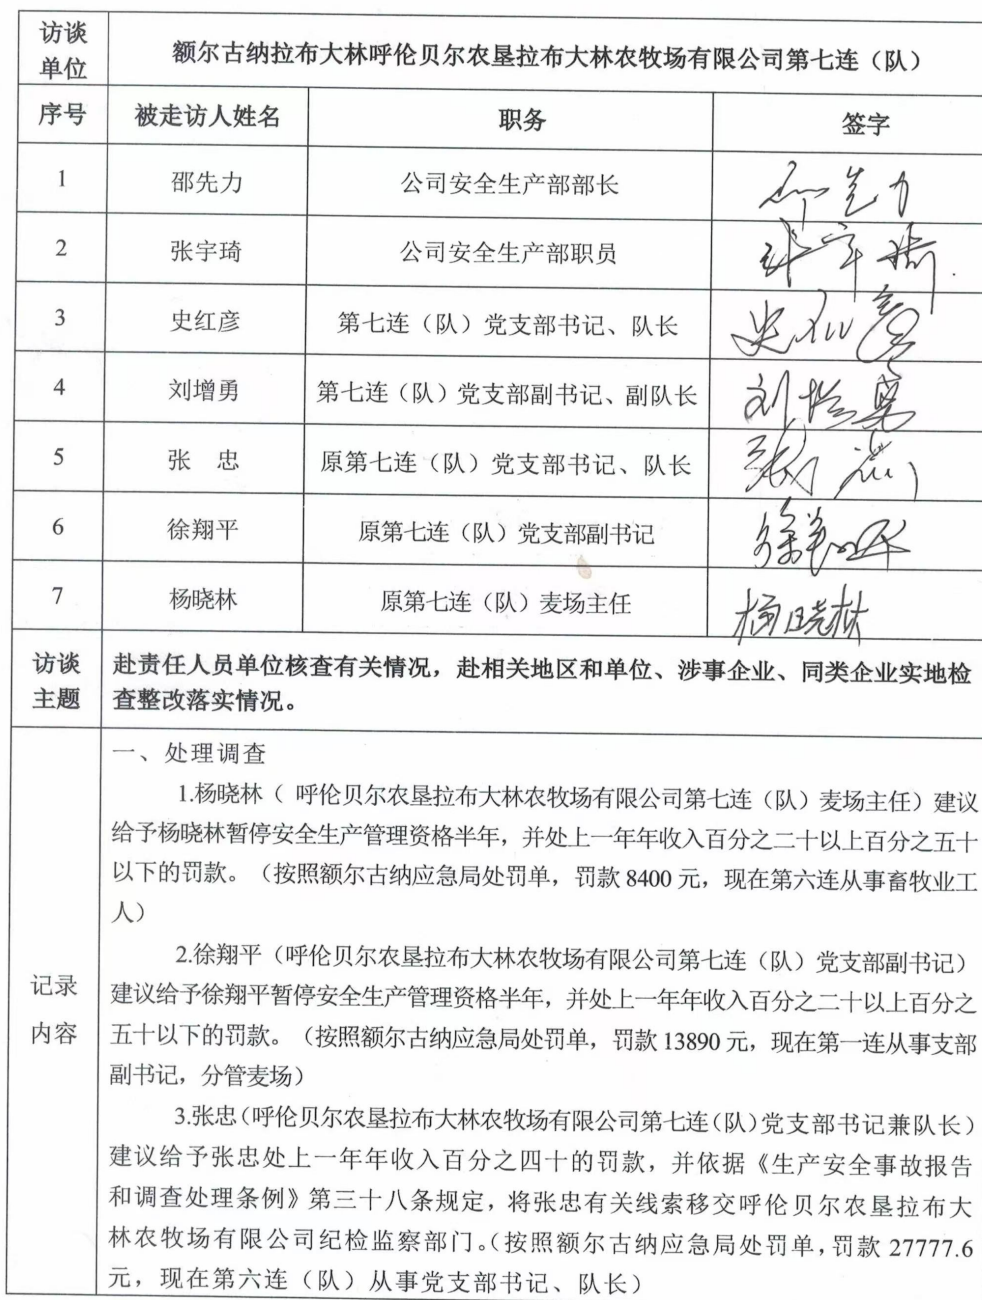 访谈
单位
额尔古纳拉布大林呼伦贝尔农垦拉布大林农牧场有限公司第七连（队）
序号 被走访人姓名 职务 签字
1 邵先力 公司安全生产部部长 邵先力
2 张宇琦 公司安全生产部职员 张宇琦
3 史红彦 第七连（队）党支部书记、队长 史红彦
4 刘增勇 第七连（队）党支部副书记、副队长 刘增勇
5 张 忠 原第七连（队）党支部书记、队长 张忠
6 徐翔平 原第七连（队）党支部副书记 徐翔平
7 杨晓林 原第七连（队）麦场主任 杨晓林
访谈
主题
赴责任人员单位核查有关情况，赴相关地区和单位、涉事企业、同类企业实地检
查整改落实情况。
记录
内容
一、处理调查
1.杨晓林（ 呼伦贝尔农垦拉布大林农牧场有限公司第七连（队）麦场主任）建议
给予杨晓林暂停安全生产管理资格半年，并处上一年年收入百分之二十以上百分之五十
以下的罚款。（按照额尔古纳应急局处罚单，罚款 8400 元，现在第六连从事畜牧业工
人）
2.徐翔平（呼伦贝尔农垦拉布大林农牧场有限公司第七连（队）党支部副书记）
建议给予徐翔平暂停安全生产管理资格半年，并处上一年年收入百分之二十以上百分之
五十以下的罚款。（按照额尔古纳应急局处罚单，罚款 13890 元，现在第一连从事支部
副书记，分管麦场）
3.张忠（呼伦贝尔农垦拉布大林农牧场有限公司第七连（队）党支部书记兼队长）
建议给予张忠处上一年年收入百分之四十的罚款，并依据《生产安全事故报告
和调查处理条例》第三十八条规定，将张忠有关线索移交呼伦贝尔农垦拉布大
林农牧场有限公司纪检监察部门。（按照额尔古纳应急局处罚单，罚款 27777.6
元，现在第六连（队）从事党支部书记、队长）